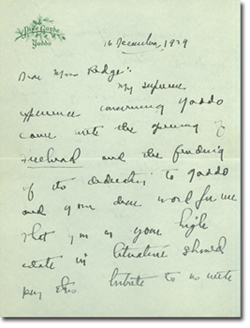 Pine Garde
Yaddo
16 December, 1929
Dear Miss Ridge:
My supreme
experience concerning Yaddo
came with the opening of
Firehead and the finding
of its dedication to Yaddo
and your dear word for me
that you in your high
estate in literature should
pay this tribute to us were